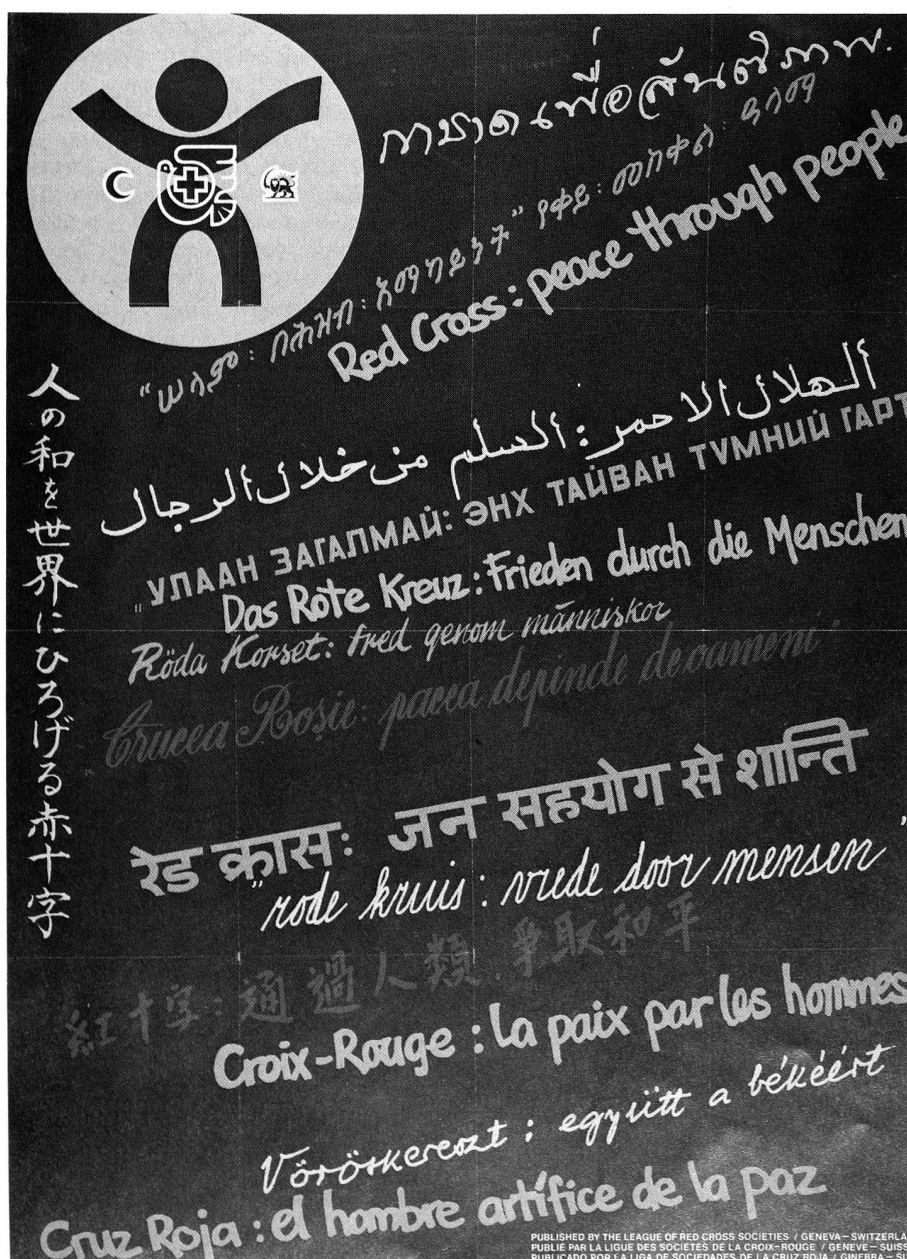 กาชาดเพื่อสันติภาพ.
"ሠላም፡ በሕዝብ፡ አማካይነት" የቀይ፡ መስቀል፡ ዓላማ
Red Cross: peace through people
الهلال الاحمر: السلم من خلال الرجال
"УЛААН ЗАГАЛМАЙ: ЭНХ ТАЙВАН ТУМНИЙ ГАРТ
Das Rote Kreuz: Frieden durch die Menschen
Röda Korset: fred genom människor
"Crucea Roşie: pacea depinde de oameni"
रेड क्रासः जन सहयोग से शान्ति
"rode kruis: vrede door mensen"
紅十字: 通過人類, 爭取和平
Croix-Rouge: la paix par les hommes
Vöröskereszt: együtt a békéért
Cruz Roja: el hombre artífice de la paz
人の和を世界にひろげる赤十字
PUBLISHED BY THE LEAGUE OF RED CROSS SOCIETIES / GENEVA – SWITZERLA
PUBLIÉ PAR LA LIGUE DES SOCIÉTÉS DE LA CROIX-ROUGE / GENÈVE – SUISS
PUBLICADO POR LA LIGA DE SOCIEDADES DE LA CRUZ ROJA / GINEBRA – SU